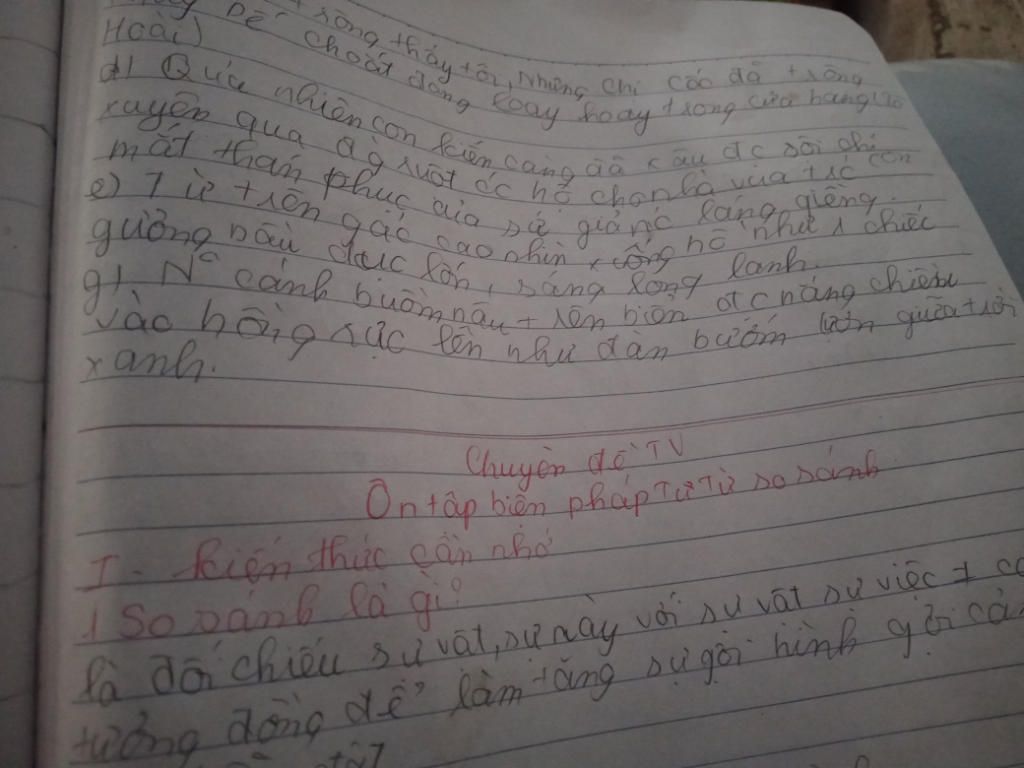 trong thấy tôi, Những chị cào đã trông
Hoài)
Dế choắt đang loay hoay trong cửa hang (Tô
d) Quả nhiên con kiến càng đã xâu đc sợi chỉ
xuyên qua đg ruột ốc hộ chân là vừa trc con
mắt thán phục của sứ giả nc láng giềng.
e) Từ trên gác cao nhìn xuống hồ như 1 chiếc
gương bầu dục lớn, sáng long lanh.
g) Nc cánh buồm nâu trên biển đc nắng chiếu
vào hồng rực lên như đàn bướm lượn giữa trời
xanh.
Chuyên đề TV
Ôn tập biện pháp Tu Từ so sánh
I - kiến thức cần nhớ
1 So sánh là gì?
là đối chiếu sự vật, sự này với sự vật sự việc + có
tưởng đồng để làm tăng sự gợi hình gợi cảm